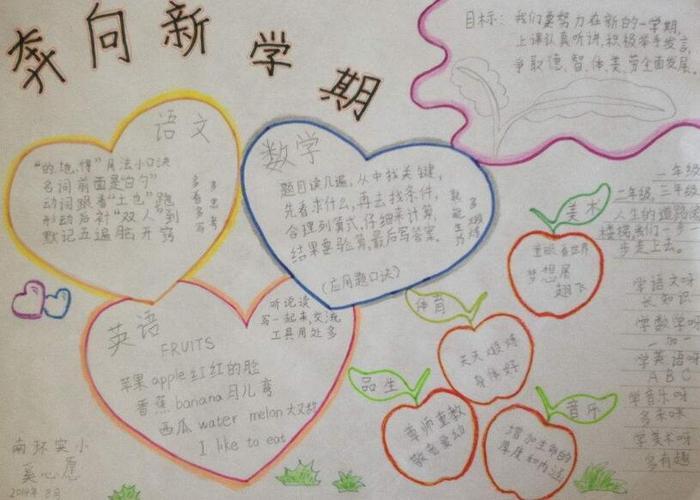 奔向新学期
目标：我们要努力在新的一学期，
上课认真听讲，积极举手发言
争取德、智、体、美、劳全面发展。
语文
"的、地、得"用法小口诀
名词前面是"白勺"
动词跟着"土也"跑
形动后补"双人"到
默记五遍脑开窍
多多
看思
多多
写考
数学
题目读几遍，从中找关键，
先看求什么，再去找条件，
合理列算式，仔细来计算，
结果要验算，最后写答案。
(应用题口诀)
英语
听说读
写一起来，交流
工具用处多
FRUITS
苹果 apple 红红的脸
香蕉 banana 月儿弯
西瓜 water melon 大又
I like to eat
美术
重眼看世界
梦想展
翅飞
体育
天天锻炼
身体好
品生
尊师重教
敬老爱幼
音乐
增加生命的
厚度和内涵
一年级
二年级，三年级
人生的道路
楼梯我们一步一
步走上去。
学语文呀
长知识
学数学呀
一加一
学英语呀
A B C
学音乐呀
多来咪
学美术呀
多有趣
南环实小
奚心愿
2014年8月